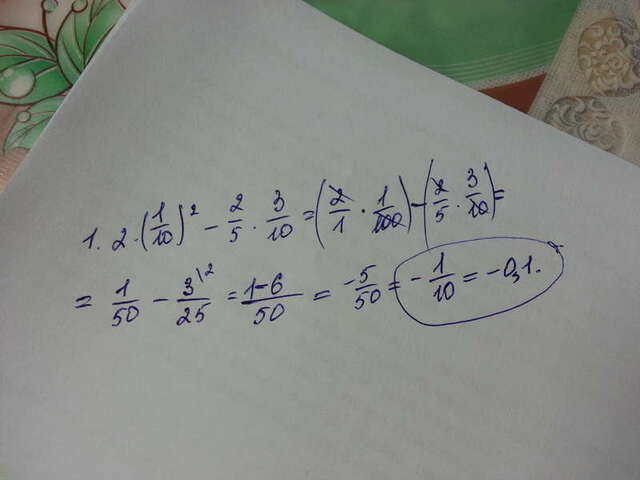 1. 2·(1/10)² − 2/5 · 3/10 = (2/1 · 1/100) − (2/5 · 3/10) =
= 1/50 − 3\²/25 = 1−6/50 = −5/50 = −1/10 = −0,1.